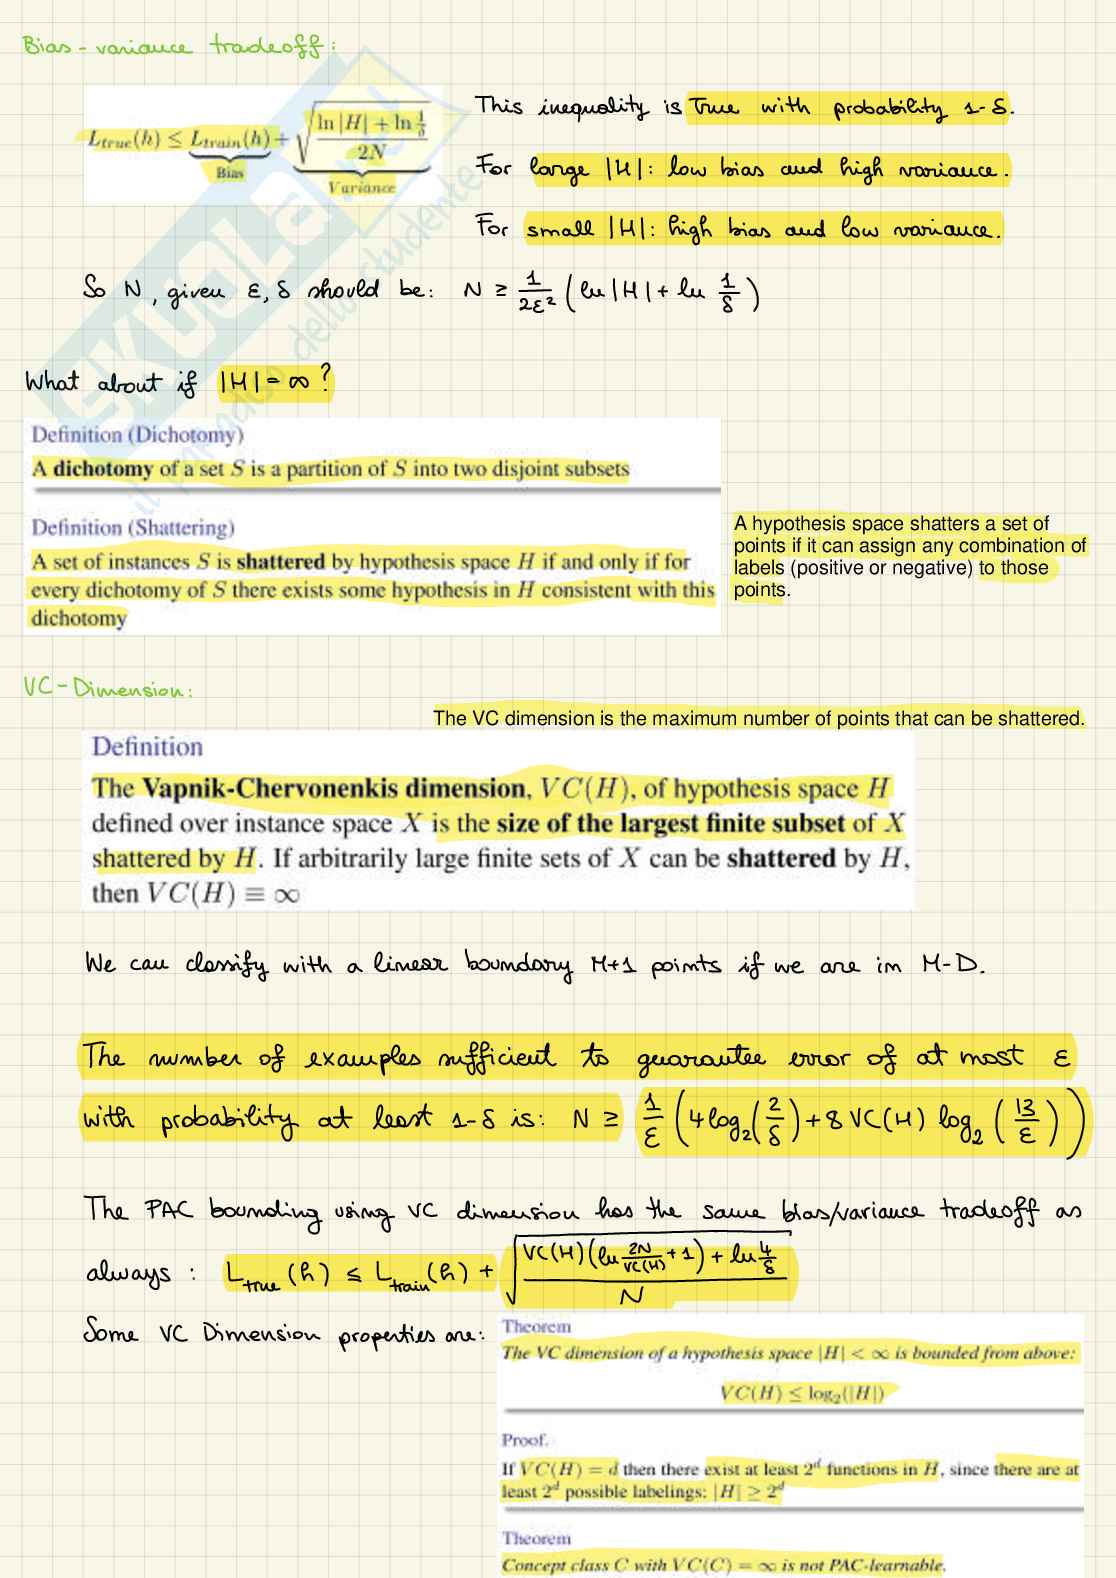 Bias-variance tradeoff:
L_true(h) ≤ L_train(h) + √((ln|H| + ln 1/δ) / 2N)
Bias
Variance
This inequality is true with probability 1-δ.
For large |H|: low bias and high variance.
For small |H|: high bias and low variance.
So N, given ε, δ should be: N ≥ 1/2ε² (ln|H| + ln 1/δ)
What about if |H| = ∞?
Definition (Dichotomy)
A dichotomy of a set S is a partition of S into two disjoint subsets
Definition (Shattering)
A set of instances S is shattered by hypothesis space H if and only if for
every dichotomy of S there exists some hypothesis in H consistent with this
dichotomy
A hypothesis space shatters a set of
points if it can assign any combination of
labels (positive or negative) to those
points.
VC-Dimension:
The VC dimension is the maximum number of points that can be shattered.
Definition
The Vapnik-Chervonenkis dimension, VC(H), of hypothesis space H
defined over instance space X is the size of the largest finite subset of X
shattered by H. If arbitrarily large finite sets of X can be shattered by H,
then VC(H) ≡ ∞
We can classify with a linear boundary M+1 points if we are in M-D.
The number of examples sufficient to guarantee error of at most ε
with probability at least 1-δ is: N ≥ 1/ε (4 log₂(2/δ) + 8 VC(H) log₂(13/ε))
The PAC bounding using VC dimension has the same bias/variance tradeoff as
always: L_true(h) ≤ L_train(h) + √((VC(H)(ln 2N/VC(H) + 1) + ln 4/δ) / N)
Some VC Dimension properties are:
Theorem
The VC dimension of a hypothesis space |H| < ∞ is bounded from above:
VC(H) ≤ log₂(|H|)
Proof.
If VC(H) = d then there exist at least 2^d functions in H, since there are at
least 2^d possible labelings: |H| ≥ 2^d
Theorem
Concept class C with VC(C) = ∞ is not PAC-learnable.